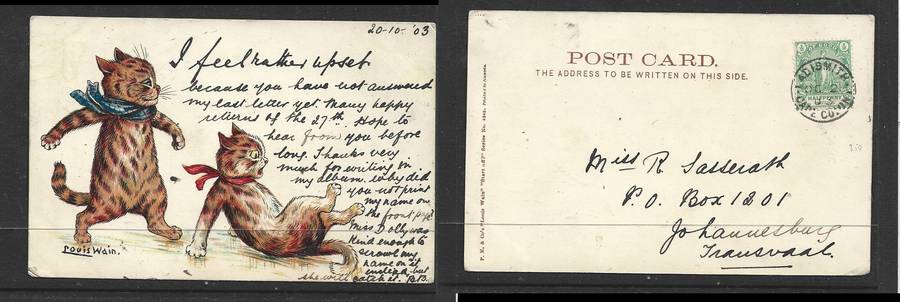 20-10-'03
I feel rather upset
because you have not answered
my last letter yet. Many happy
returns of the 27th. Hope to
hear from you before
long. Thanks very
much for writing in
my album. Why did
you not print
my name on
the front page
Miss Dolly was
kind enough to
scrawl my
name on it
instead, but
she will catch it. B.B.
Louis Wain.
POST CARD.
THE ADDRESS TO BE WRITTEN ON THIS SIDE.
"Louis Wain" "Start off" Series No.
LADISMITH
Miss R Sasserath
P.O. Box 1201
Johannesburg
Transvaal.